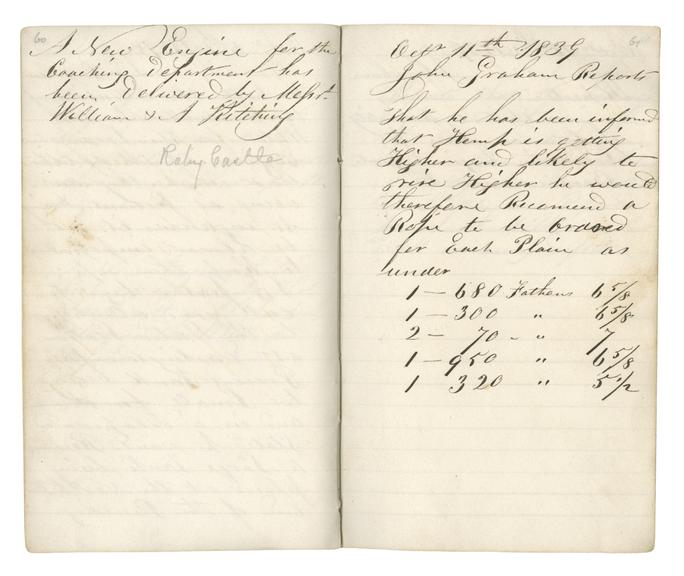 60
A New Engine for the
Coaching Department has
been Delivered by Messrs
William & A Kitching
Raby Castle
61
Octr 11th 1839
John Graham Reports
That he has been informd
that Hemp is getting
Higher and likely to
rise Higher he would
therefore Recomend a
Rope to be ordred
for Each Plain as
under
1 — 680 Fathens 6 5/8
1 — 300 " 6 5/8
2 — 70 - " 7
1 — 950 " 6 5/8
1 320 " 5 1/2